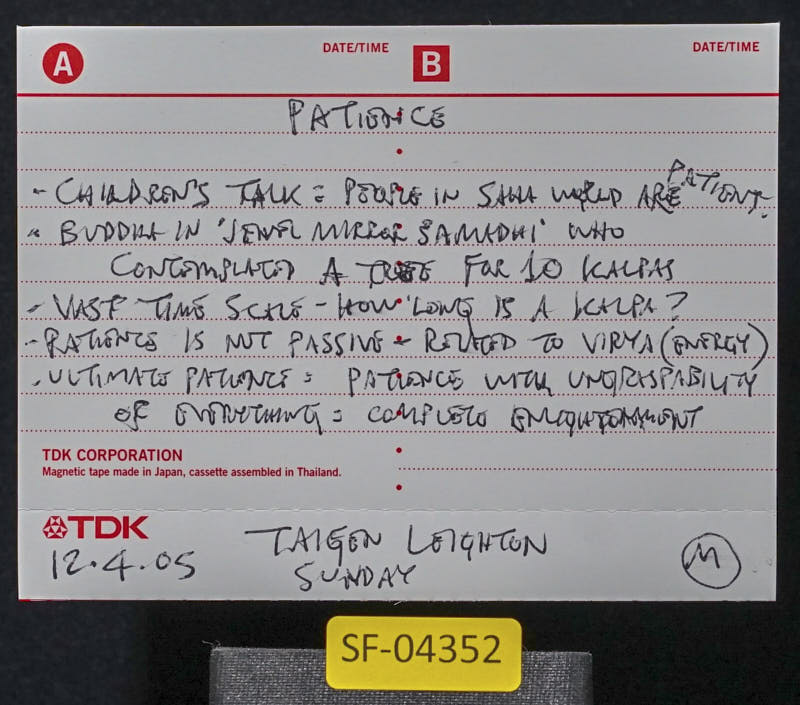 A DATE/TIME B DATE/TIME
PATIENCE
- CHILDREN'S TALK = PEOPLE IN SAHA WORLD ARE PATIENT.
- BUDDHA IN 'JEWEL MIRROR SAMADHI' WHO
CONTEMPLATED A TREE FOR 10 KALPAS
- VAST TIME SCALE - HOW LONG IS A KALPA?
- PATIENCE IS NOT PASSIVE - RELATED TO VIRYA (ENERGY)
- ULTIMATE PATIENCE = PATIENCE WITH UNGRASPABILITY
OF EVERYTHING = COMPLETE ENLIGHTENMENT
TDK CORPORATION
Magnetic tape made in Japan, cassette assembled in Thailand.
TDK
12.4.05 TAIGEN LEIGHTON
SUNDAY
M
SF-04352